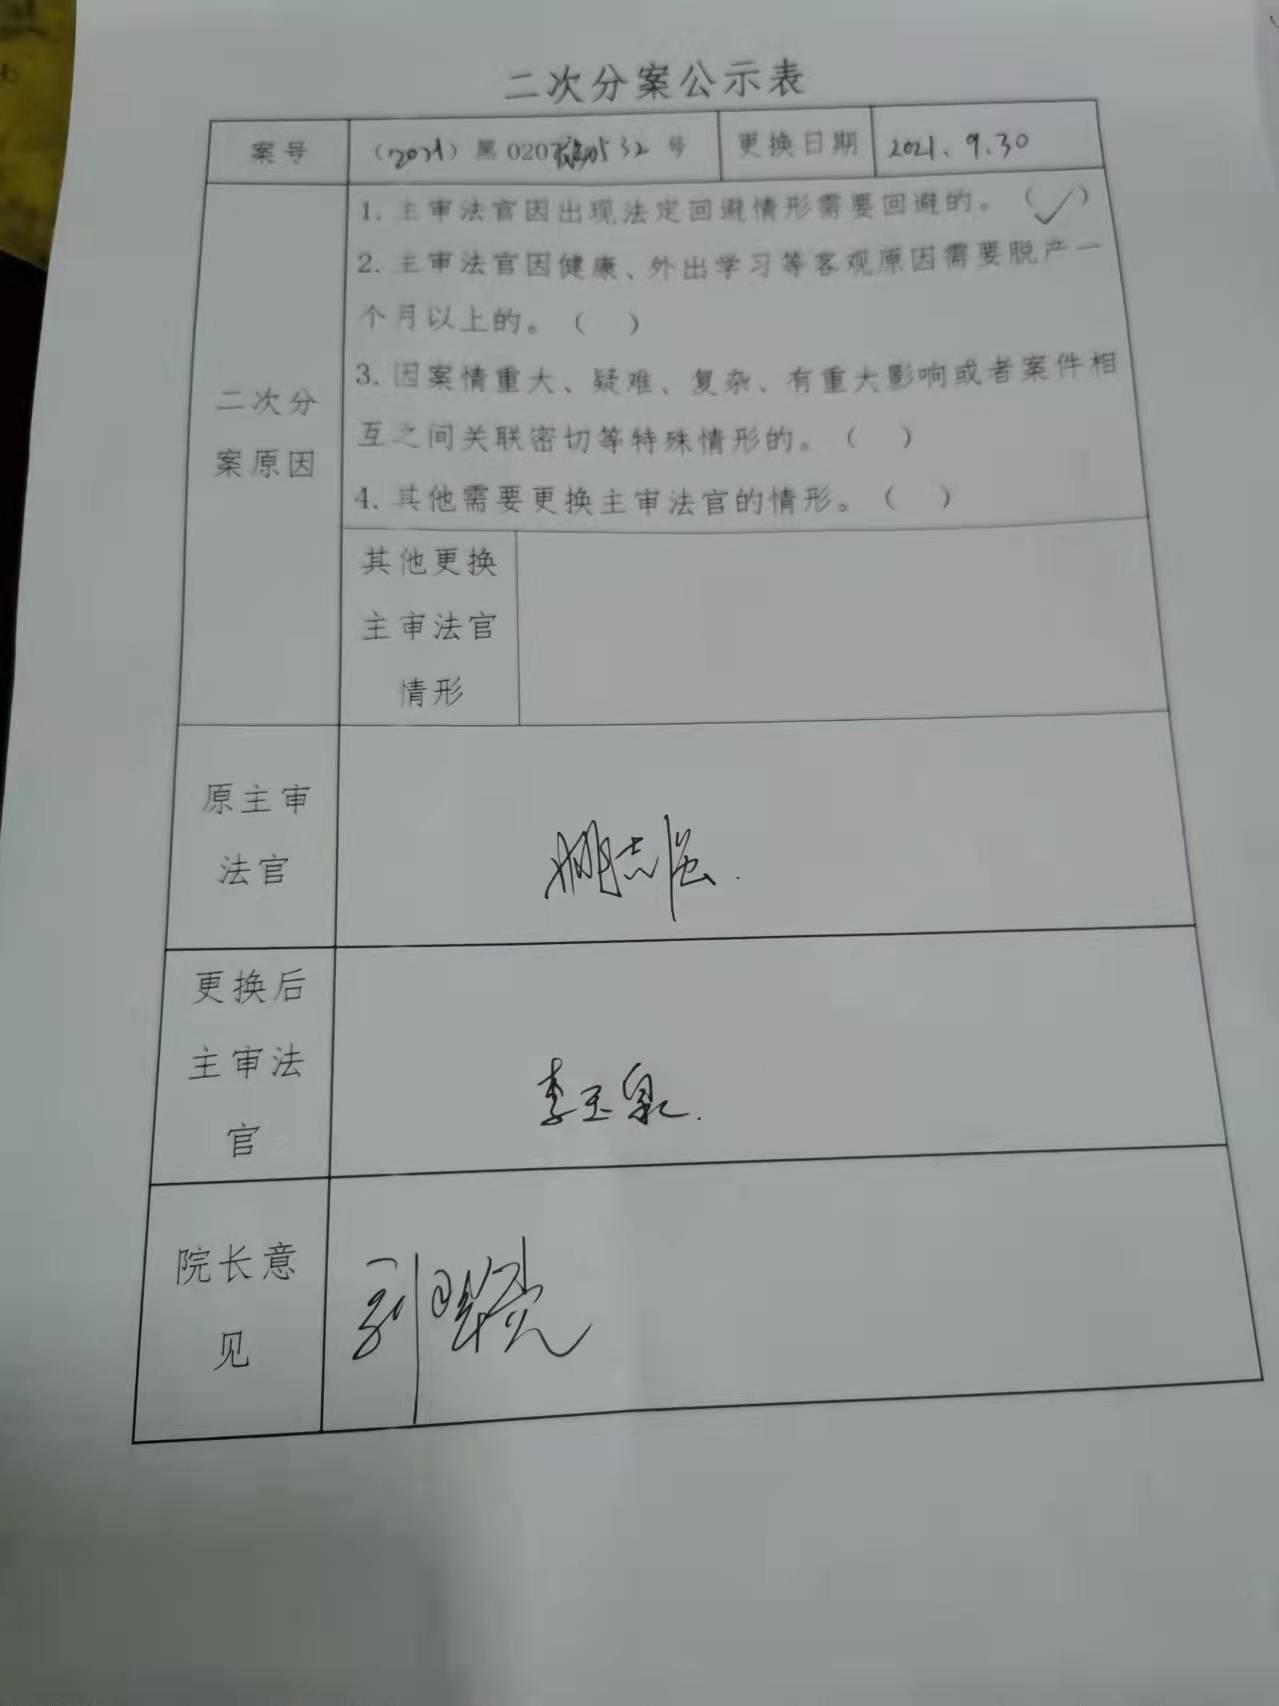 二次分案公示表
案号
(2021)黑020 532号
更换日期
2021.9.30
二次分
案原因
1. 主审法官因出现法定回避情形需要回避的。(✓)
2. 主审法官因健康、外出学习等客观原因需要脱产一
个月以上的。( )
3. 因案情重大、疑难、复杂、有重大影响或者案件相
互之间关联密切等特殊情形的。( )
4. 其他需要更换主审法官的情形。( )
其他更换
主审法官
情形
原主审
法官
志强.
更换后
主审法
官
李玉泉.
院长意
见
刘